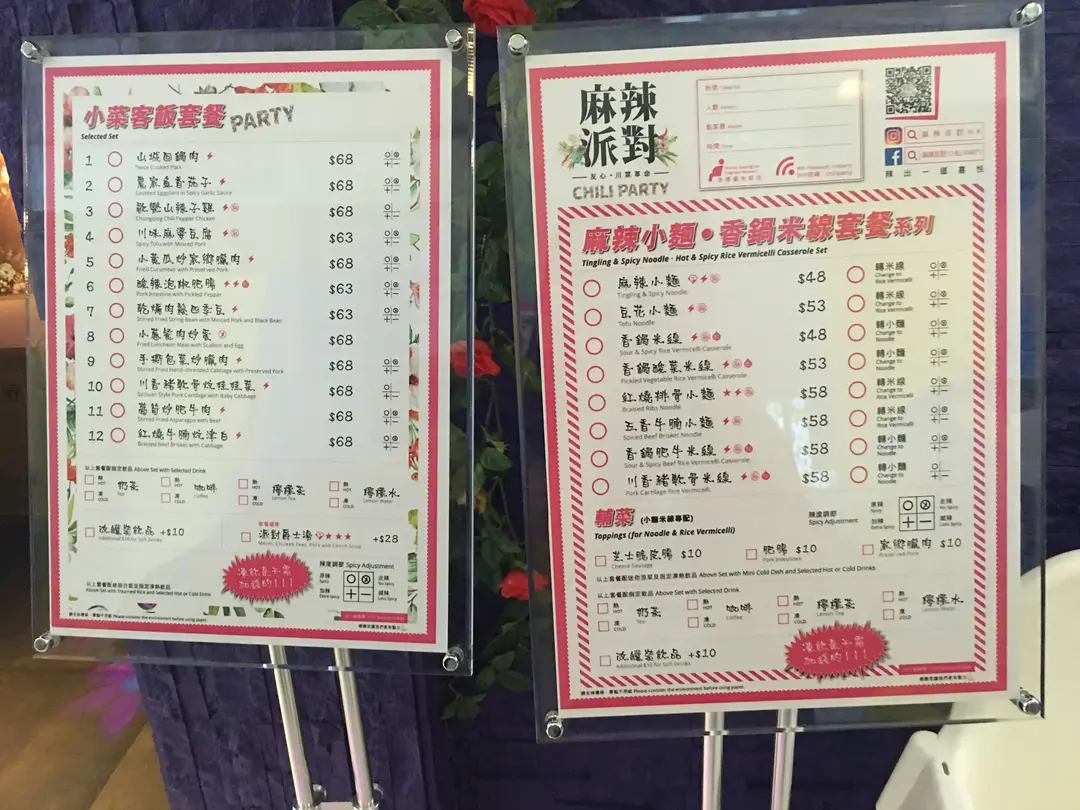 小菜客飯套餐 PARTY
Selected Set
1 山城回鍋肉 $68
Twice Cooked Pork
2 農家魚香茄子 $68
Sautéed Eggplant in Spicy Garlic Sauce
3 歌樂山辣子雞 $68
Chongqing Chili Pepper Chicken
4 川味麻婆豆腐 $63
Spicy Tofu with Minced Pork
5 小黃瓜炒家鄉臘肉 $68
Fried Cucumber with Preserved Pork
6 酸辣泡椒肥腸 $63
Pork Intestine with Pickled Pepper
7 乾煸肉鬆四季豆 $68
Stirred Fried String Bean with Minced Pork and Black Bean
8 小蔥餐肉炒蛋 $68
Fried Luncheon Meat with Scallion and Egg
9 手撕包菜炒臘肉 $68
Stirred Fried Hand-shredded Cabbage with Preserved Pork
10 川香豬軟骨炆娃娃菜 $68
Sichuan Style Pork Cartilage with Baby Cabbage
11 蘆筍炒肥牛肉 $68
Stirred Fried Asparagus with Beef
12 紅燒牛腩炆津白 $68
Braised Beef Brisket with Cabbage
以上套餐配指定飲品 Above Set with Selected Drink
熱 HOT 凍 COLD 奶茶 Tea
熱 HOT 凍 COLD 咖啡 Coffee
熱 HOT 凍 COLD 檸檬茶 Lemon Tea
熱 HOT 凍 COLD 檸檬水 Lemon Water
改罐裝飲品 +$10
Additional $10 for Soft Drinks
派對爵士湯 +$28
凍飲是不需加錢的!!!
辣度調節 Spicy Adjustment
原辣 Spicy
走辣 No Spicy
加辣 Extra Spicy
減辣 Less Spicy
以上套餐配絲苗白飯及指定凍熱飲品
Above Set with Steamed Rice and Selected Hot or Cold Drink
Please consider the environment before using paper.
麻辣派對
友心・川菜革命
CHILI PARTY
枱號
人數
點菜員
時間
辣出一道喜悅
麻辣小麵・香鍋米線套餐系列
Tingling & Spicy Noodle · Hot & Spicy Rice Vermicelli Casserole Set
麻辣小麵 $48 轉米線
Tingling & Spicy Noodle Change to Rice Vermicelli
豆花小麵 $53 轉米線
Tofu Noodle Change to Rice Vermicelli
香鍋米線 $48 轉小麵
Sour & Spicy Rice Vermicelli Casserole Change to Noodle
香鍋酸菜米線 $53 轉小麵
Pickled Vegetable Rice Vermicelli Casserole Change to Noodle
紅燒排骨小麵 $58 轉米線
Braised Ribs Noodle Change to Rice Vermicelli
五香牛腩小麵 $58 轉米線
Spiced Beef Brisket Noodle Change to Rice Vermicelli
香鍋肥牛米線 $58 轉小麵
Sour & Spicy Beef Rice Vermicelli Casserole Change to Noodle
川香豬軟骨米線 $58 轉小麵
Pork Cartilage Rice Vermicelli Change to Noodle
輔菜 (小麵米線專配)
Toppings (for Noodle & Rice Vermicelli)
辣度調節
Spicy Adjustment
原辣 Spicy
走辣 No Spicy
加辣 Extra Spicy
減辣 Less Spicy
芝士脆皮腸 $10
Cheese Sausage
肥腸 $10
Pork Intestines
家鄉臘肉 $10
Preserved Pork
以上套餐配迷你涼菜及指定凍熱飲品 Above Set with Mini Cold Dish and Selected Hot or Cold Drinks
以上套餐配指定飲品 Above Set with Selected Drink
熱 HOT 凍 COLD 奶茶 Tea
熱 HOT 凍 COLD 咖啡 Coffee
熱 HOT 凍 COLD 檸檬茶 Lemon Tea
熱 HOT 凍 COLD 檸檬水 Lemon Water
改罐裝飲品 +$10
Additional $10 for Soft Drinks
凍飲是不需加錢的!!!
Please consider the environment before using paper.